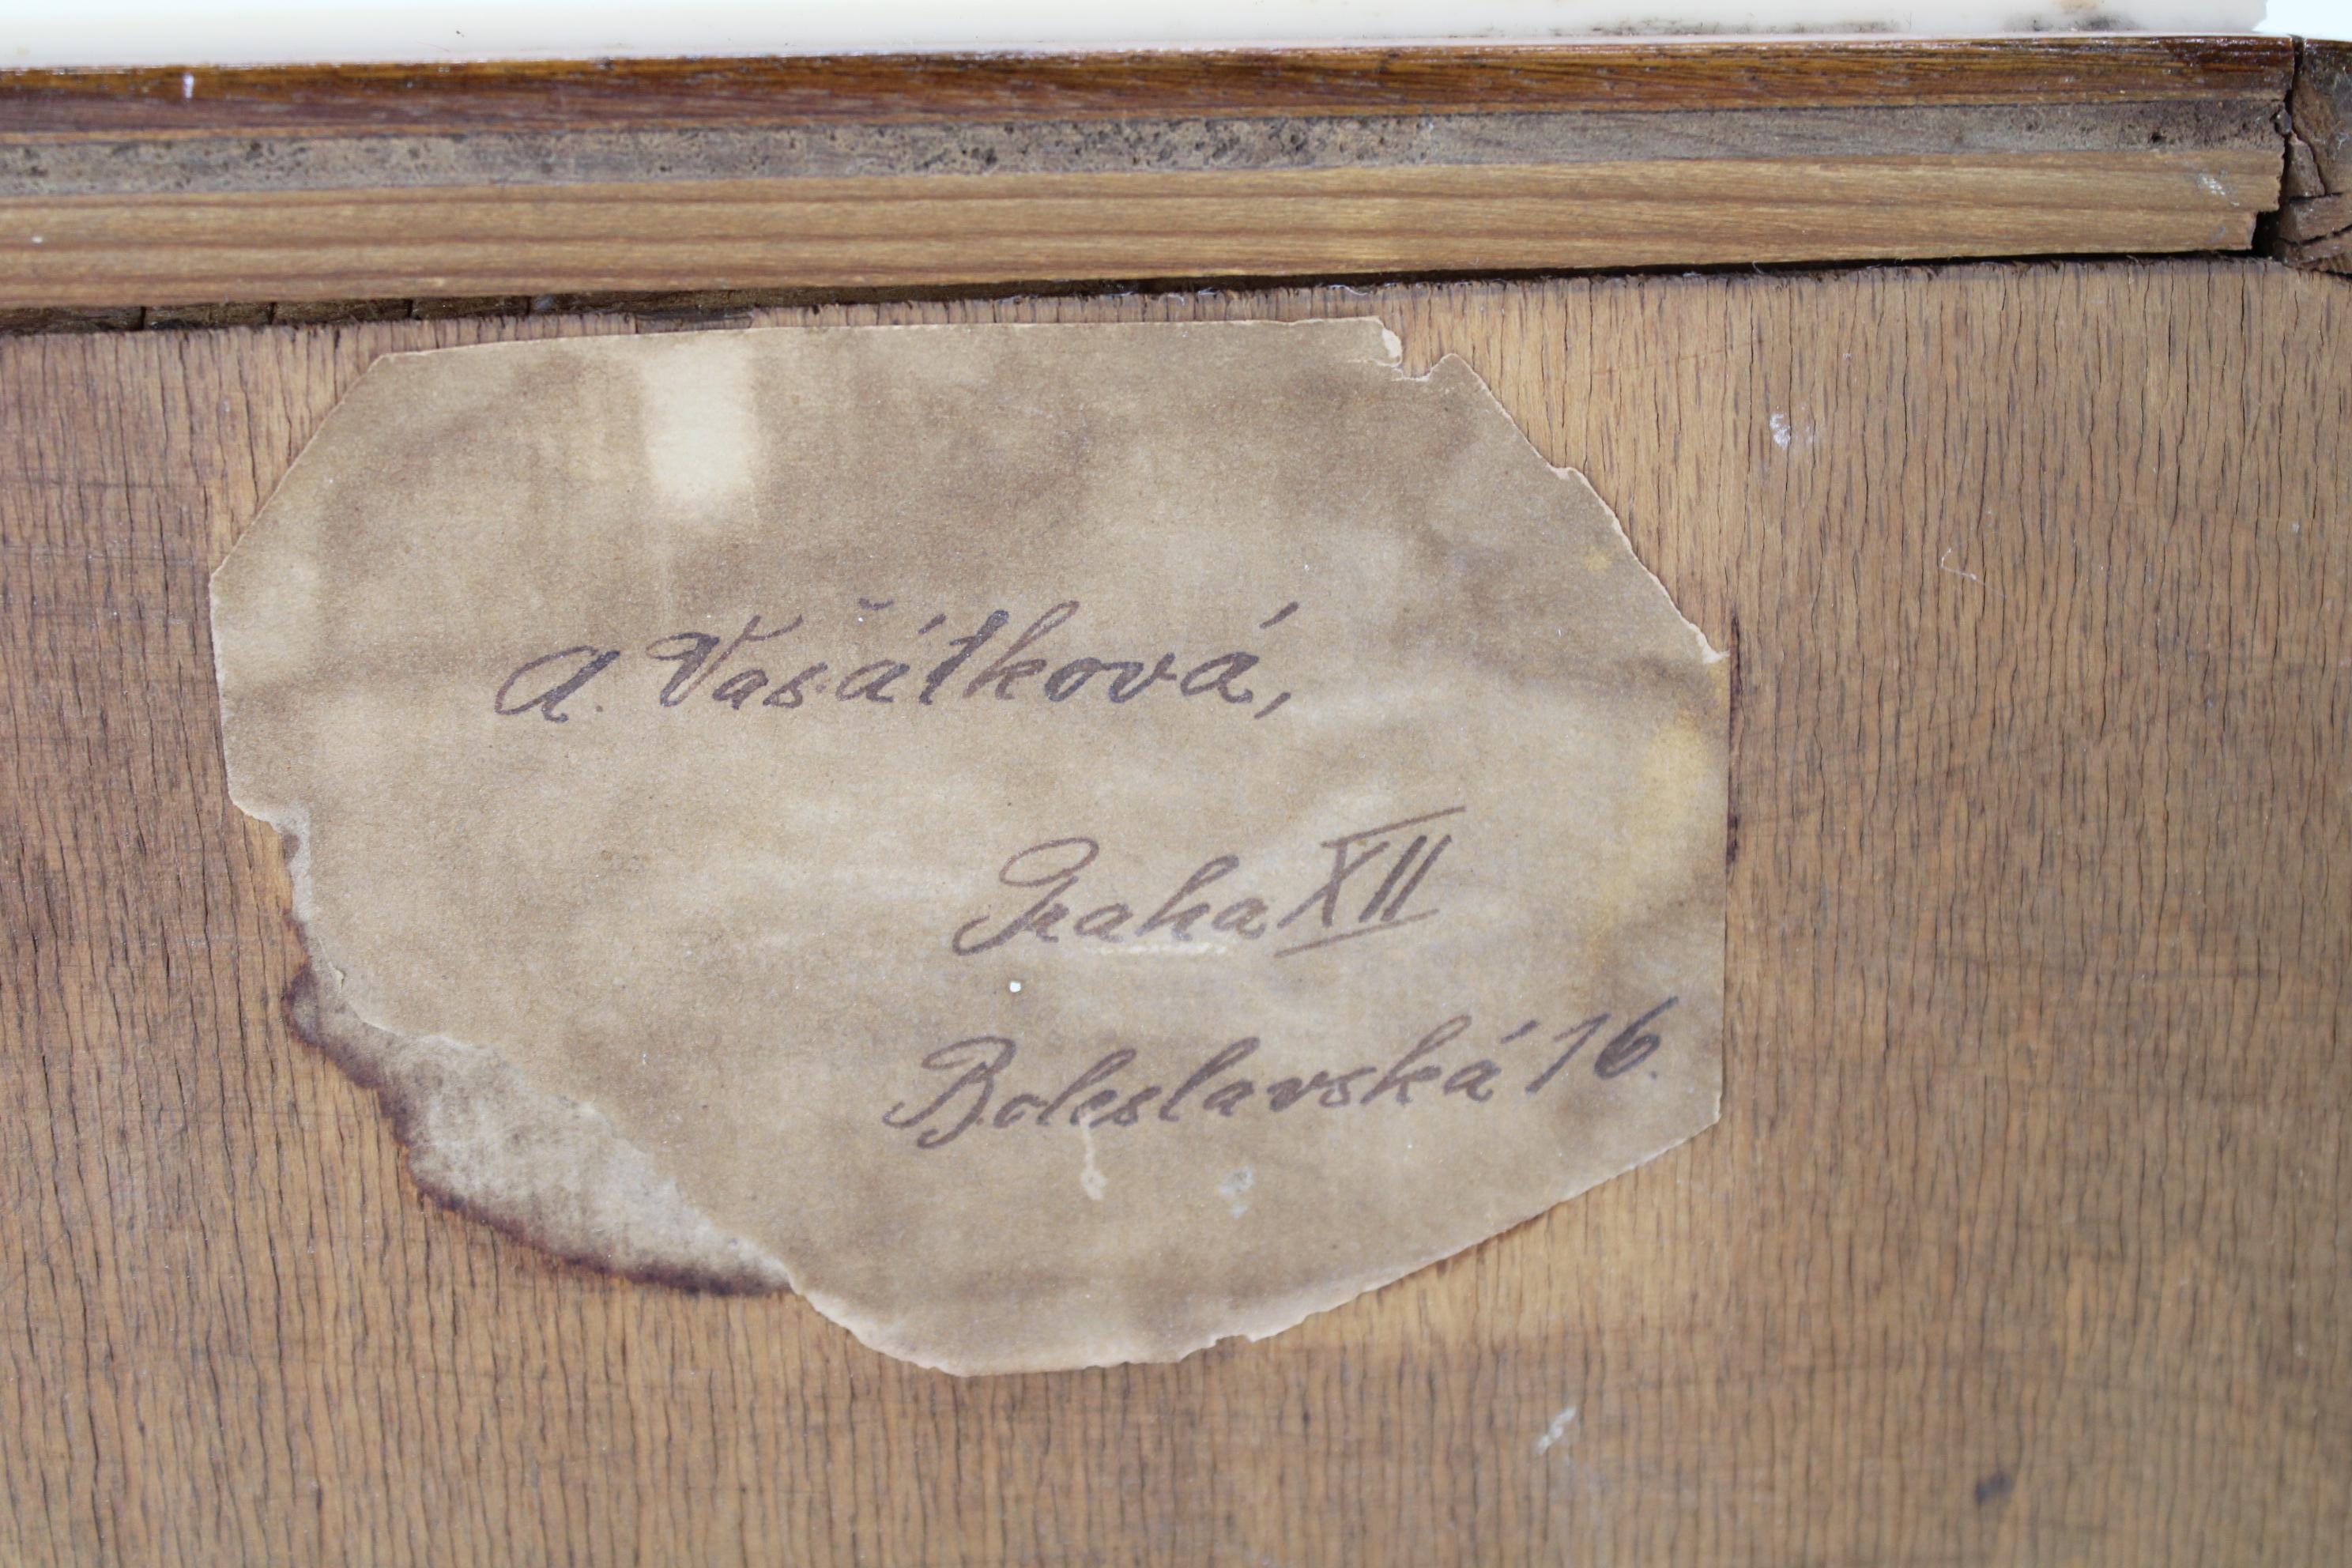 A. Vašátková,
Praha XII
Boleslavská 16.